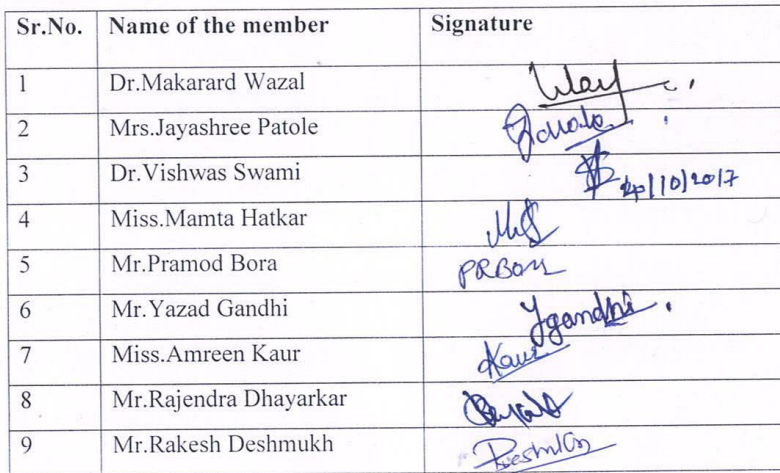 Sr.No. Name of the member Signature
1 Dr.Makarard Wazal
2 Mrs.Jayashree Patole
3 Dr.Vishwas Swami
4 Miss.Mamta Hatkar
5 Mr.Pramod Bora PRBora
6 Mr.Yazad Gandhi Ygandhi.
7 Miss.Amreen Kaur Kaur
8 Mr.Rajendra Dhayarkar
9 Mr.Rakesh Deshmukh